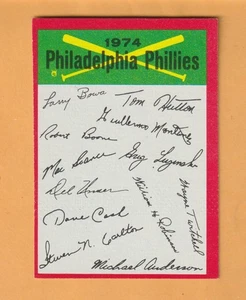 1974
Philadelphia Phillies
Larry Bowa
Tom Hutton
Guillermo Montanez
Robert Boone
Mac Scarce
Greg Luzinski
Del Unser
Wayne Twitchell
Dave Cash
William H Robinson
Steven N. Carlton
Michael Anderson